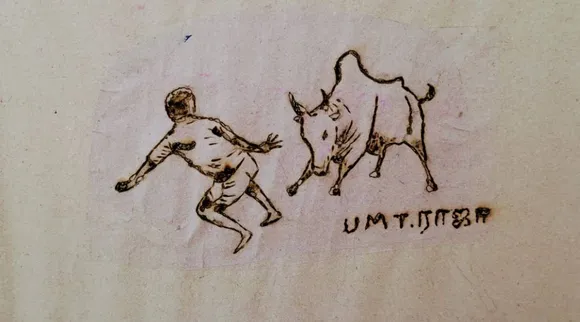 பு M T. ராஜா